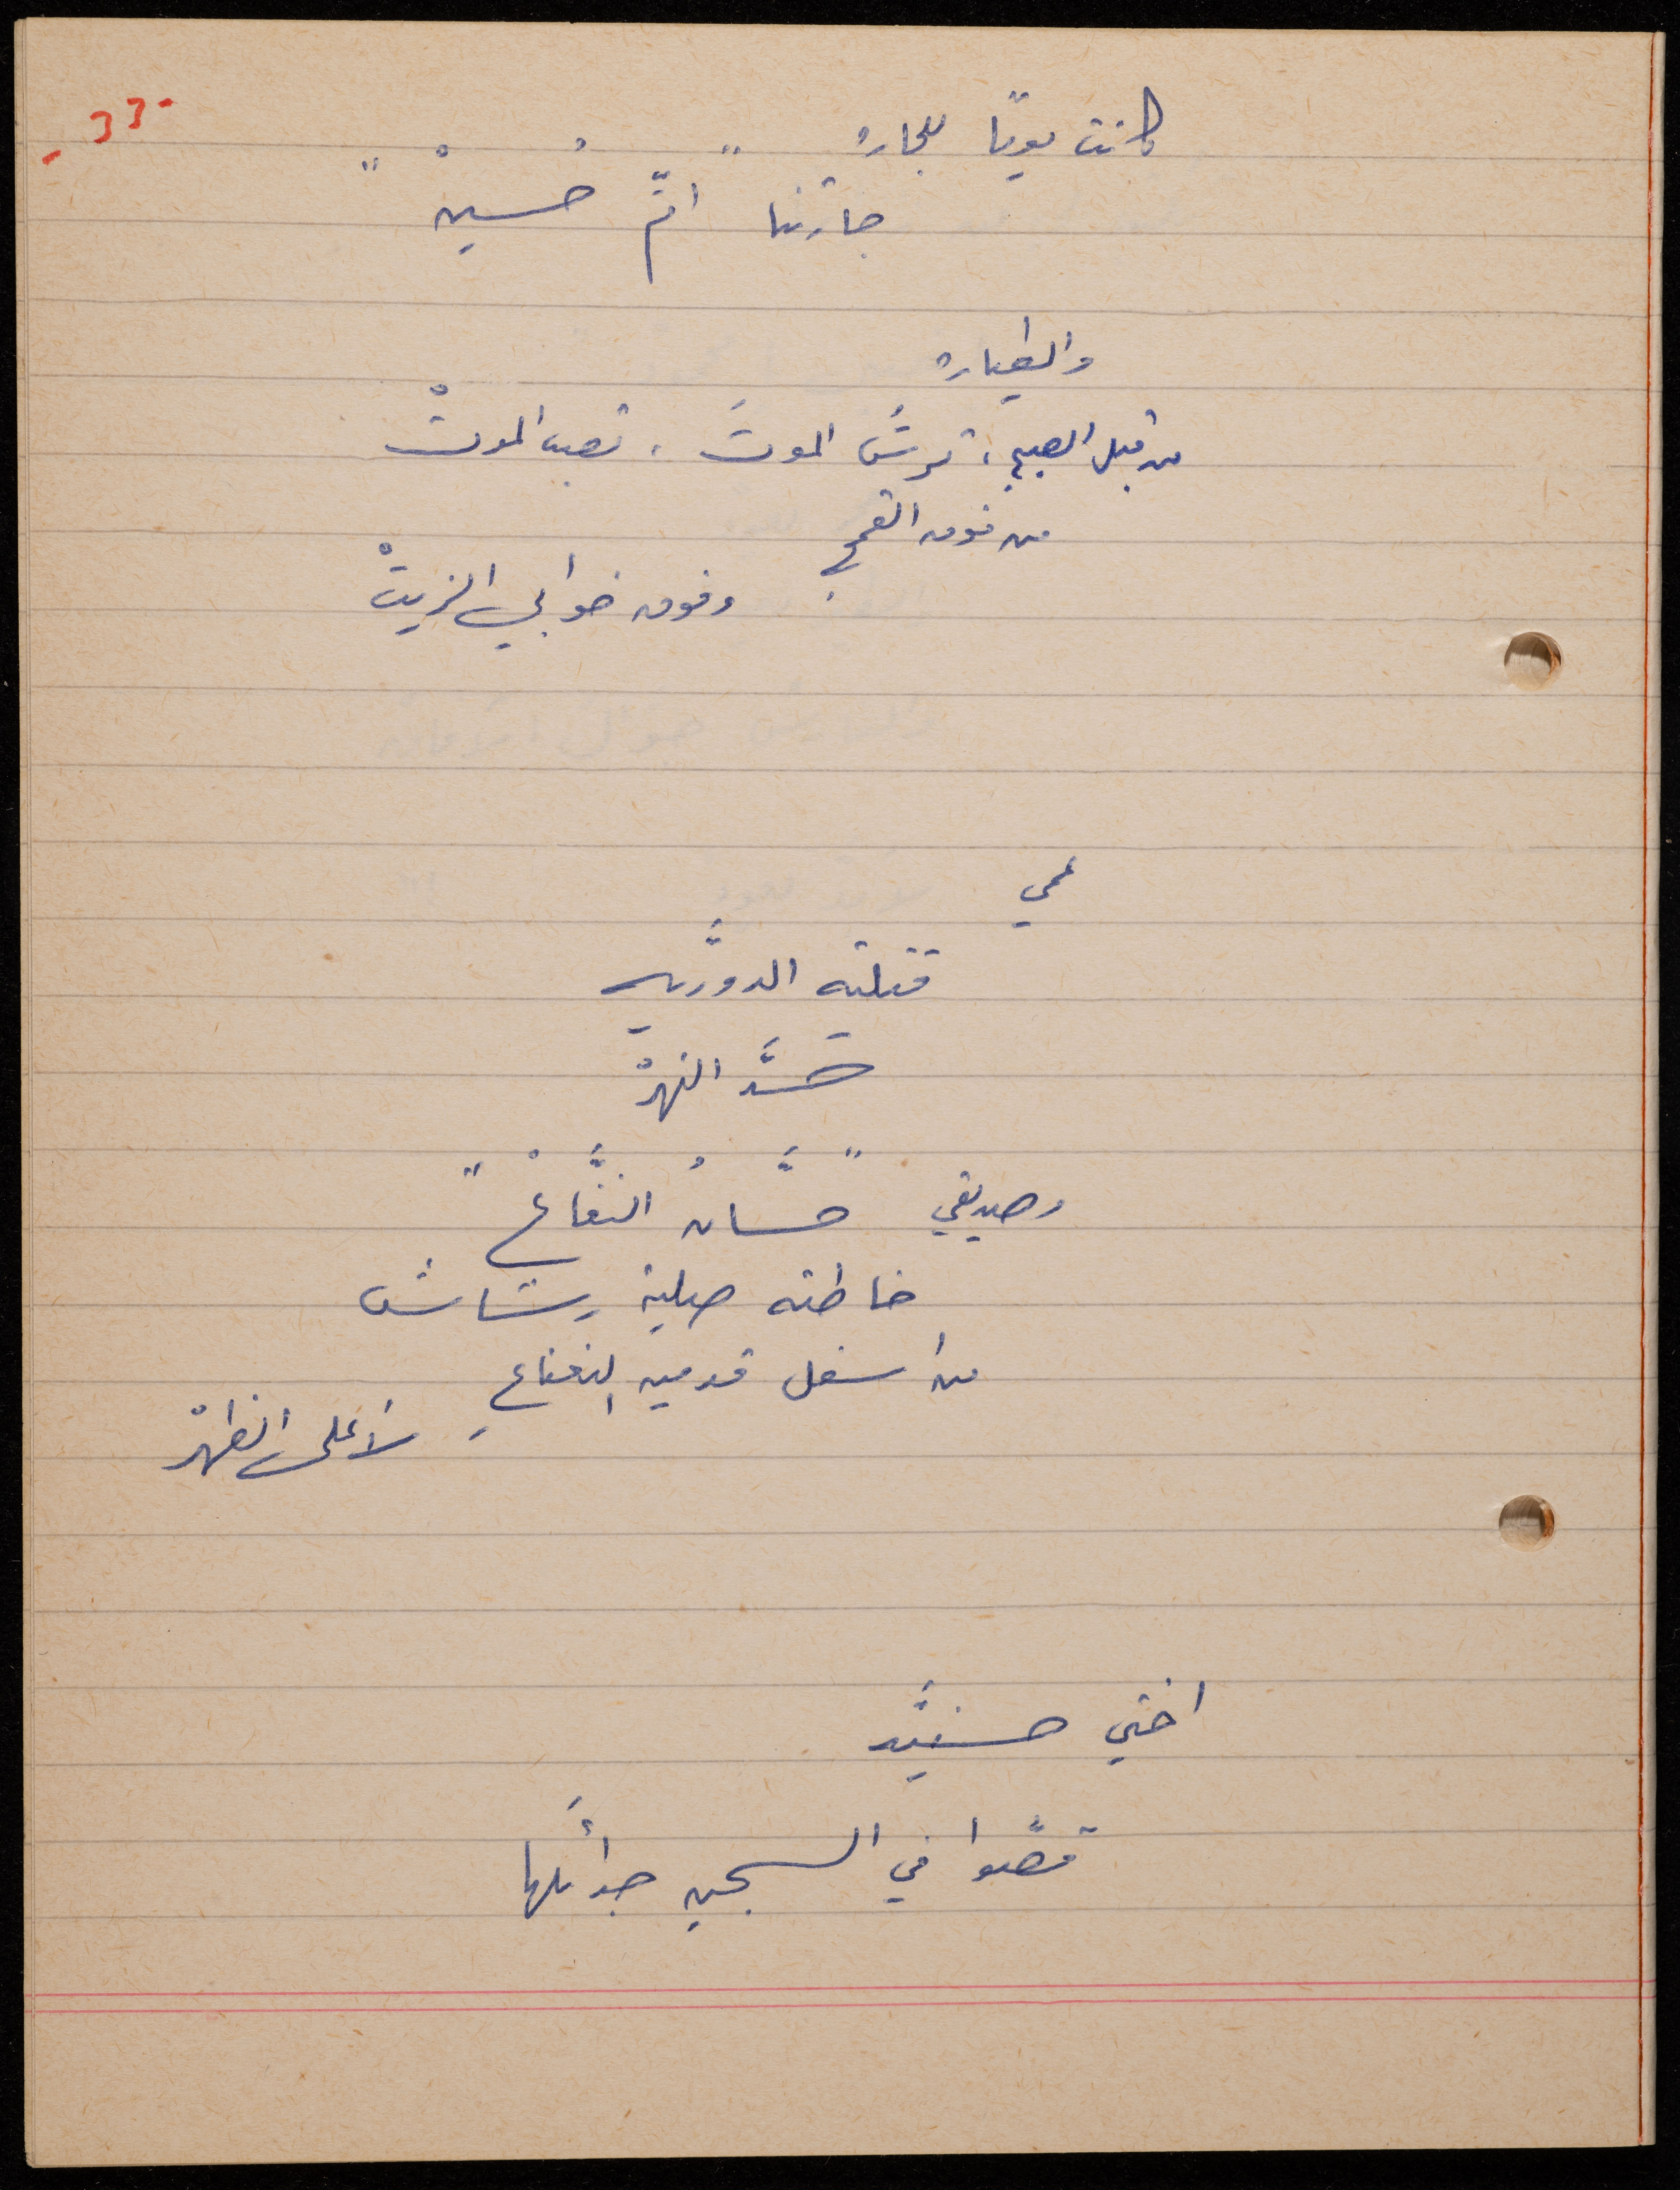 - ٣٣ -
كانت يومًا للجاره
جارتنا " امّ حُسينْ "
والطياره
من قبل الصبحِ ، ترشَ الموتَ ، تصب الموتْ
من فوق القمحِ
وفوق خوابي الزيتْ
عمي
قتلته الدوريَّه
حَسَّد النهرْ
وصديقي " حسَّانُ النفَّاعْ "
خاطته صلية رشاش
من اسفل قدميه النعناعِ
لأعلى الظهرْ
اختي حسنيَّه
قصّوا في السجن جدائلَها